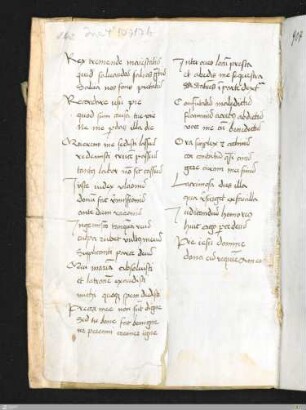 Rex tremende maiestatis
qui saluandos saluas gratis
Salua nos fons pietatis
Recordare ihu pie
quod sum causa tue vie
Ne me perdas illa die
Querens me sedisti lassus
redemisti crucem passus
tantus labor non sit cassus
Iuste iudex ultionis
donum fac remissionis
ante diem racionis
Ingemisco tanquam reus
culpa rubet vultus meus
Supplicanti parce deus
Qui mariam absoluisti
et latronem exaudisti
michi quoque spem dedisti
Preces mee non sunt digne
Sed tu bone fac benigne
ne perenni cremer igne
Inter oues locum presta
et ab edis me sequestra
Statuens in parte dextra
Confutatis maledictis
flammis acribus addictis
voca me cum benedictis
Oro supplex et acclinis
cor contritum quasi cinis
gere curam mei finis
Lacrimosa dies illa
qua resurget ex fauilla
Iudicandus homo reus
huic ergo parce deus
Pie iesu domine
dona eis requiem amen